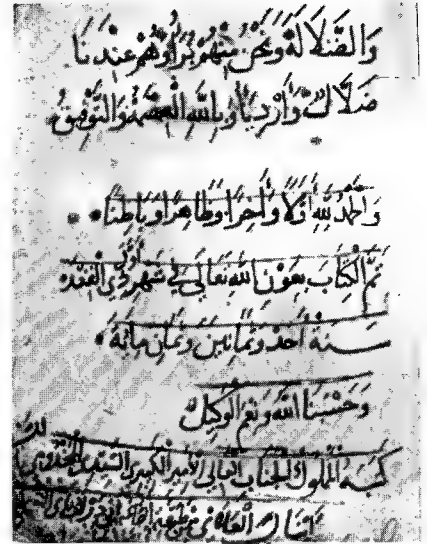 وَالضَّلَالَةُ وَنَحْنُ مِنْهُمْ بُرَآءُ وَهُمْ عِنْدَنَا
ضُلَّالٌ وَأَرْدِيَاءُ وَبِاللَّهِ الْعِصْمَةُ وَالتَّوْفِيقُ
وَالْحَمْدُ لِلَّهِ أَوَّلًا وَآخِرًا وَظَاهِرًا وَبَاطِنًا
تَمَّ الْكِتَابُ بِعَوْنِ اللَّهِ تَعَالَى فِي شَهْرِ ذِي الْقَعْدَة
سَنَةَ أَحَدْ وَثَمَانِينَ وَثَمَانِ مِائَة
وَحَسْبُنَا اللَّهُ وَنِعْمَ الْوَكِيلُ
كتبه المملوك الجناب العالي الأمير الكبيري السيدي